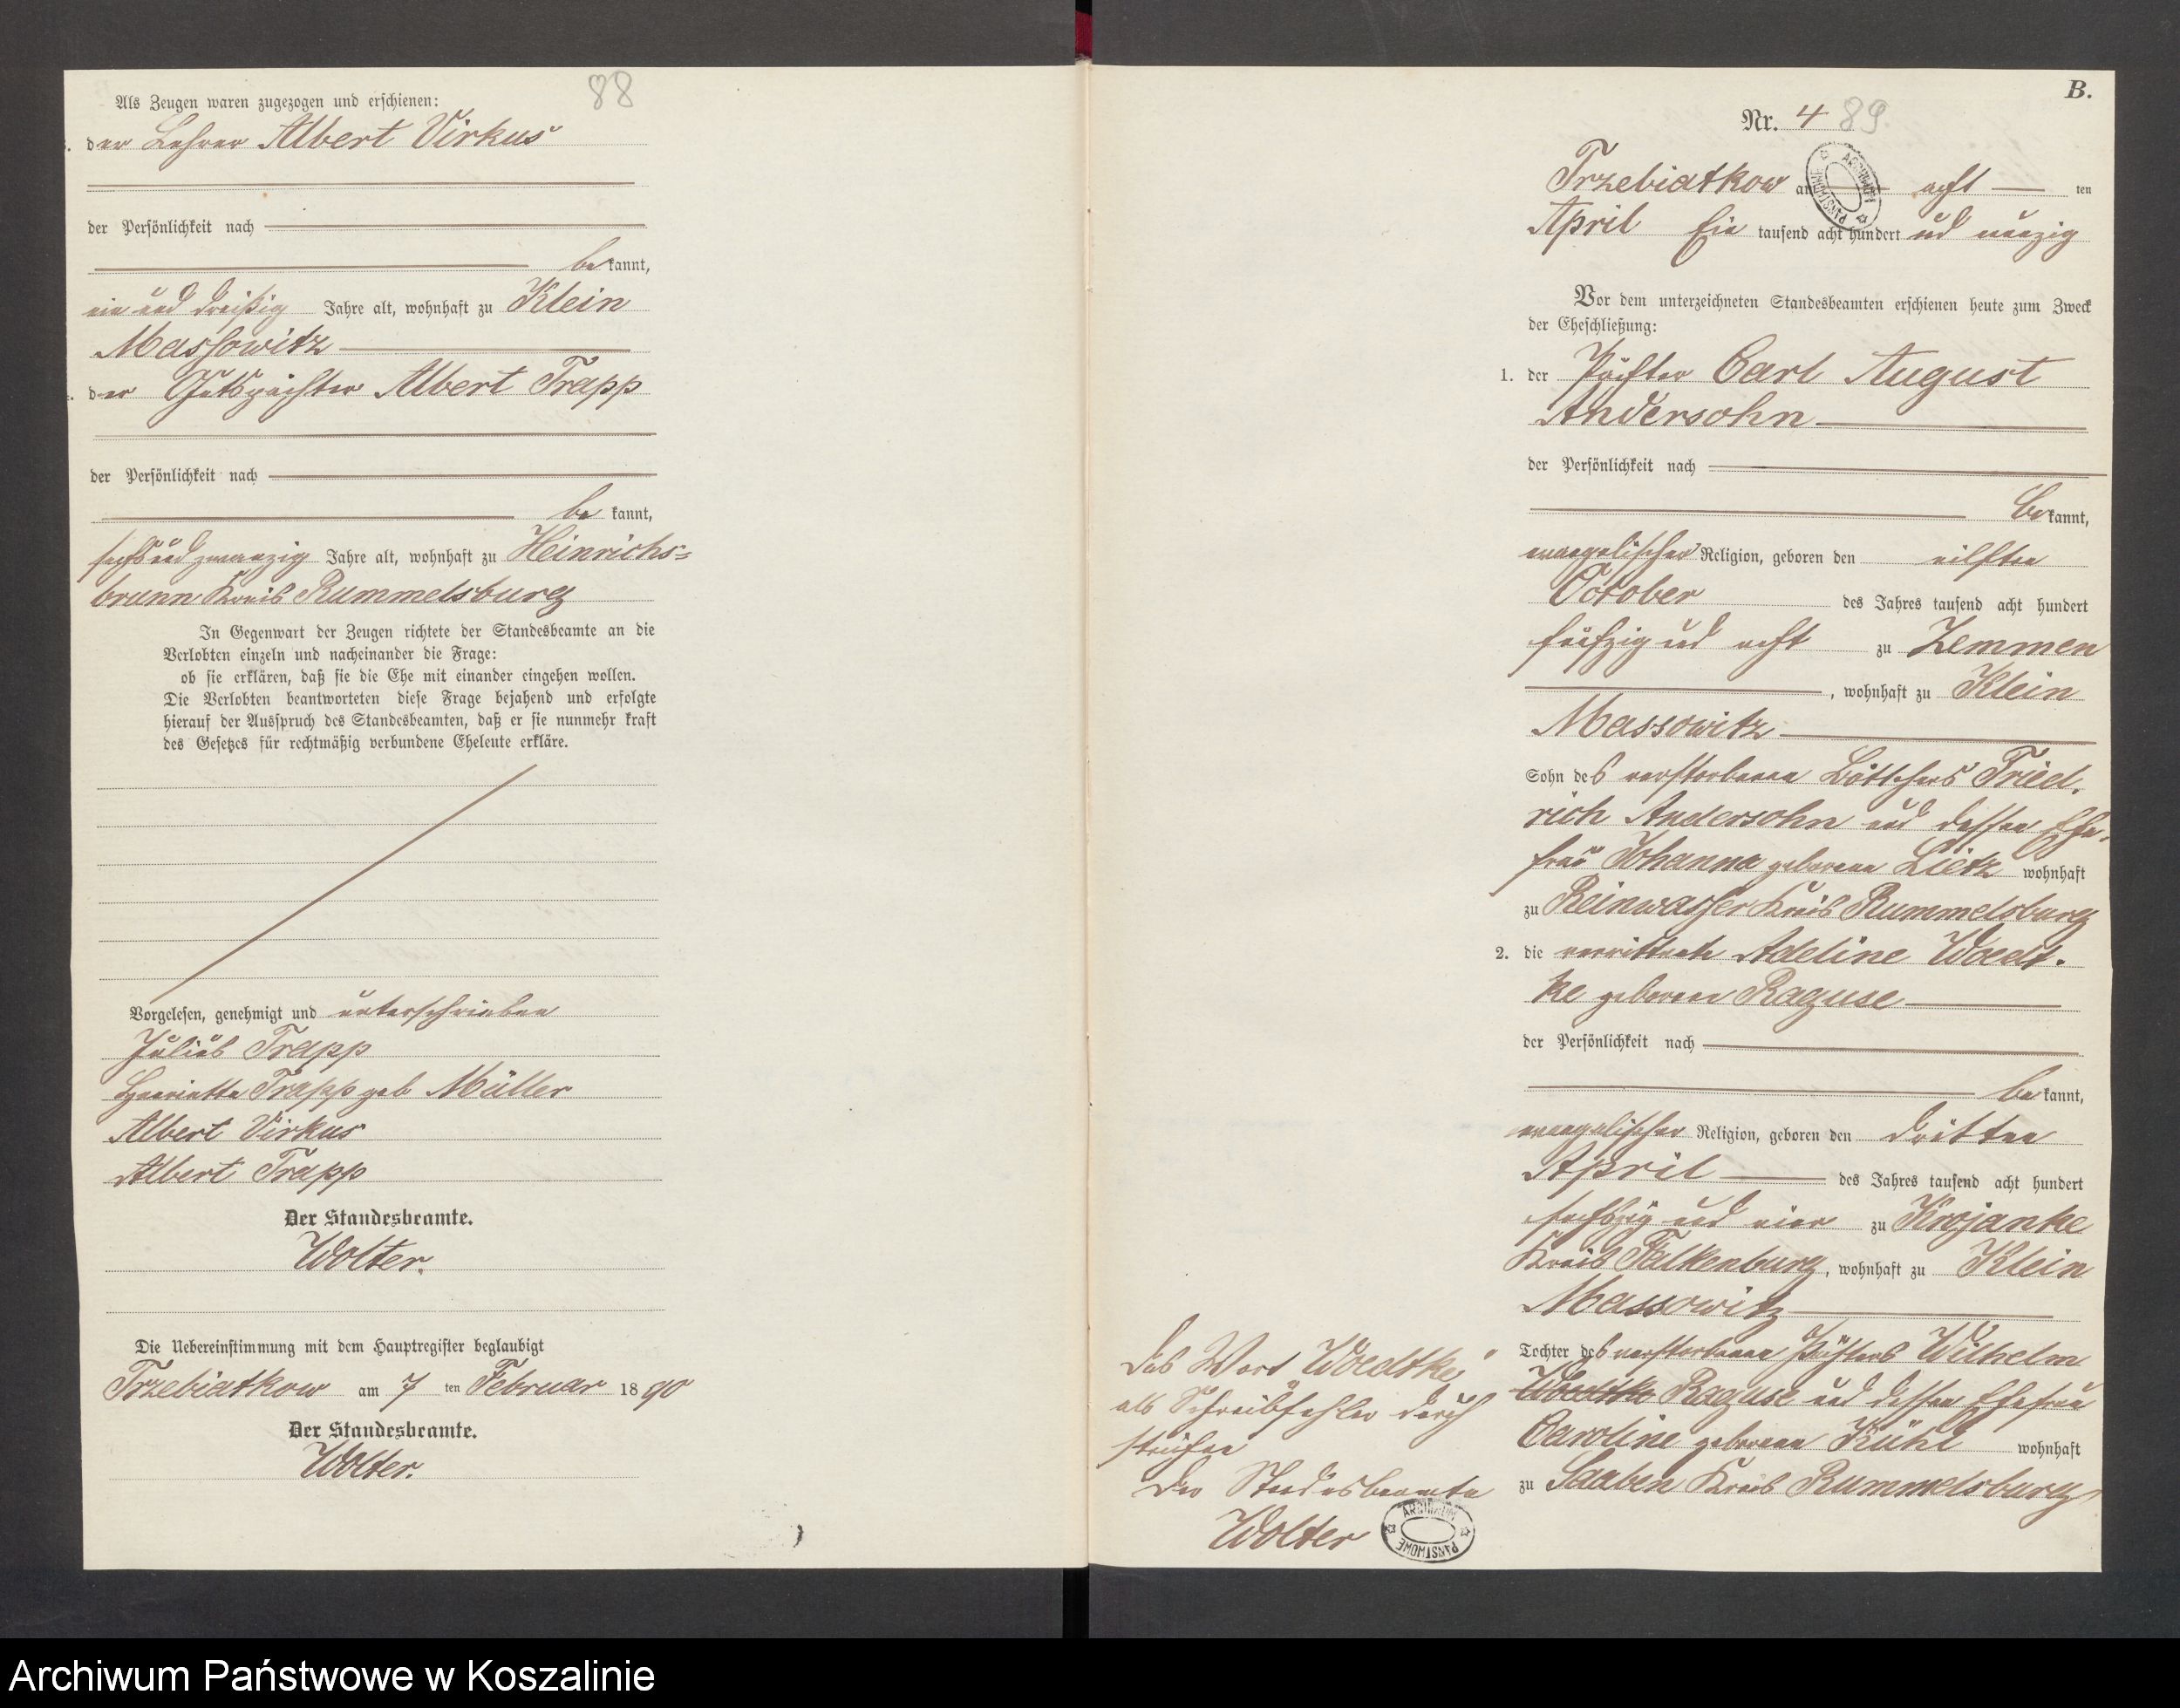 88
Als Zeugen waren zugezogen und erschienen:
der Lehrer Albert Virkus
der Persönlichkeit nach
bekannt,
ein und dreißig Jahre alt, wohnhaft zu Klein
Massowitz
der Gutspächter Albert Trapp
der Persönlichkeit nach
bekannt,
sechs und zwanzig Jahre alt, wohnhaft zu Heinrichs=
brunn Kreis Rummelsburg
In Gegenwart der Zeugen richtete der Standesbeamte an die
Verlobten einzeln und nacheinander die Frage:
ob sie erklären, daß sie die Ehe mit einander eingehen wollen.
Die Verlobten beantworteten diese Frage bejahend und erfolgte
hierauf der Ausspruch des Standesbeamten, daß er sie nunmehr kraft
des Gesetzes für rechtmäßig verbundene Eheleute erkläre.
Vorgelesen, genehmigt und unterschrieben
Julius Trapp
Henriette Trapp geb Müller
Albert Virkus
Albert Trapp
Der Standesbeamte.
Wolter.
Die Uebereinstimmung mit dem Hauptregister beglaubigt
Trzebiatkow am 7 ten Februar 1890
Der Standesbeamte.
Wolter.
B.
Nr. 4 89
Trzebiatkow am acht ten
April Ein tausend acht hundert und neunzig
Vor dem unterzeichneten Standesbeamten erschienen heute zum Zweck
der Eheschließung:
1. der Pächter Carl August
Andersohn
der Persönlichkeit nach
bekannt,
evangelischer Religion, geboren den eilften
October des Jahres tausend acht hundert
fünfzig und acht zu Zemmen
, wohnhaft zu Klein
Massowitz
Sohn des verstorbenen Böttchers Fried.
rich Andersohn und dessen Ehe.
frau Johanna geborene Lietz wohnhaft
zu Reinwasser Kreis Rummelsburg
2. die verwittwete Adeline Woedt.
ke geborene Raguse
der Persönlichkeit nach
bekannt,
evangelischer Religion, geboren den dritten
April des Jahres tausend acht hundert
sechszig und vier zu Krojanke
Kreis Falkenburg, wohnhaft zu Klein
Massowitz
Tochter des verstorbenen Pächters Wilhelm
Woedtke Raguse und dessen Ehefrau
Caroline geborene Kühl wohnhaft
zu Saaben Kreis Rummelsburg
Das Wort "Woedtke"
als Schreibfehler durch
strichen
Der Standesbeamte
Wolter
ARCHIWUM PAŃSTWOWE
ARCHIWUM PAŃSTWOWE
Archiwum Państwowe w Koszalinie